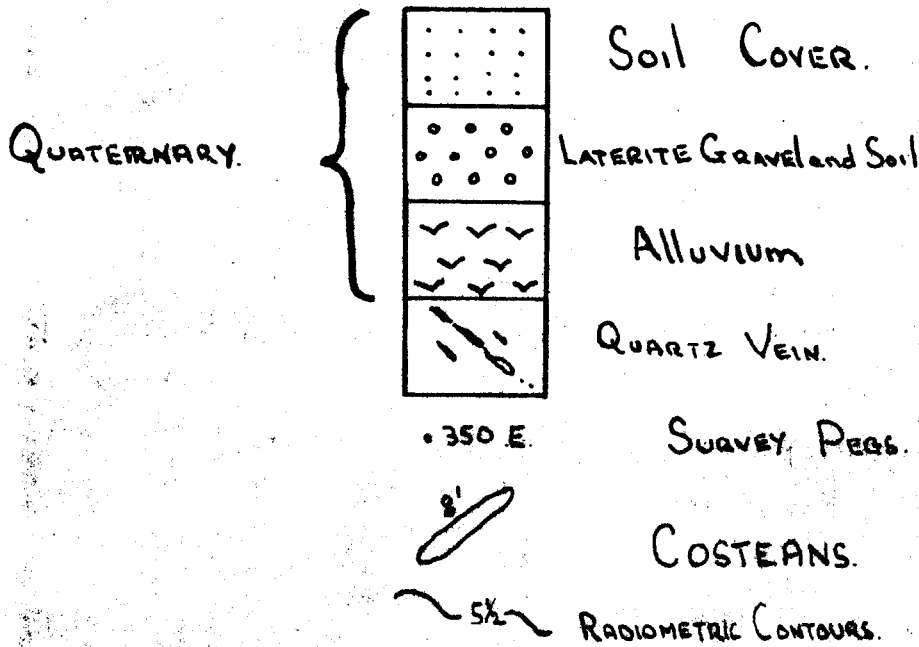 Soil COVER.
QUATERNARY.
LATERITE GRAVEL and Soil
Alluvium
QUARTZ VEIN.
. 350 E.
SURVEY PEGS.
8'
COSTEANS.
5½
RADIOMETRIC CONTOURS.